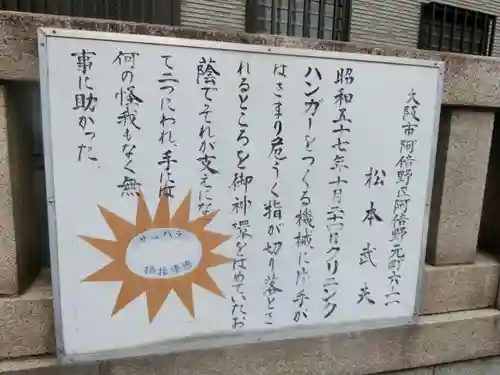 大阪市阿倍野区阿倍野元町六ノ一一
松本武夫
昭和五十七年十月二十四日クリーニング
ハンガーをつくる機械に片手が
はさまり危うく指が切り落とさ
れるところを御神環をはめていたお
蔭でそれが支えにな
て二つにわれ、手には
何の怪我もなく無
事に助かった、
サムハラ